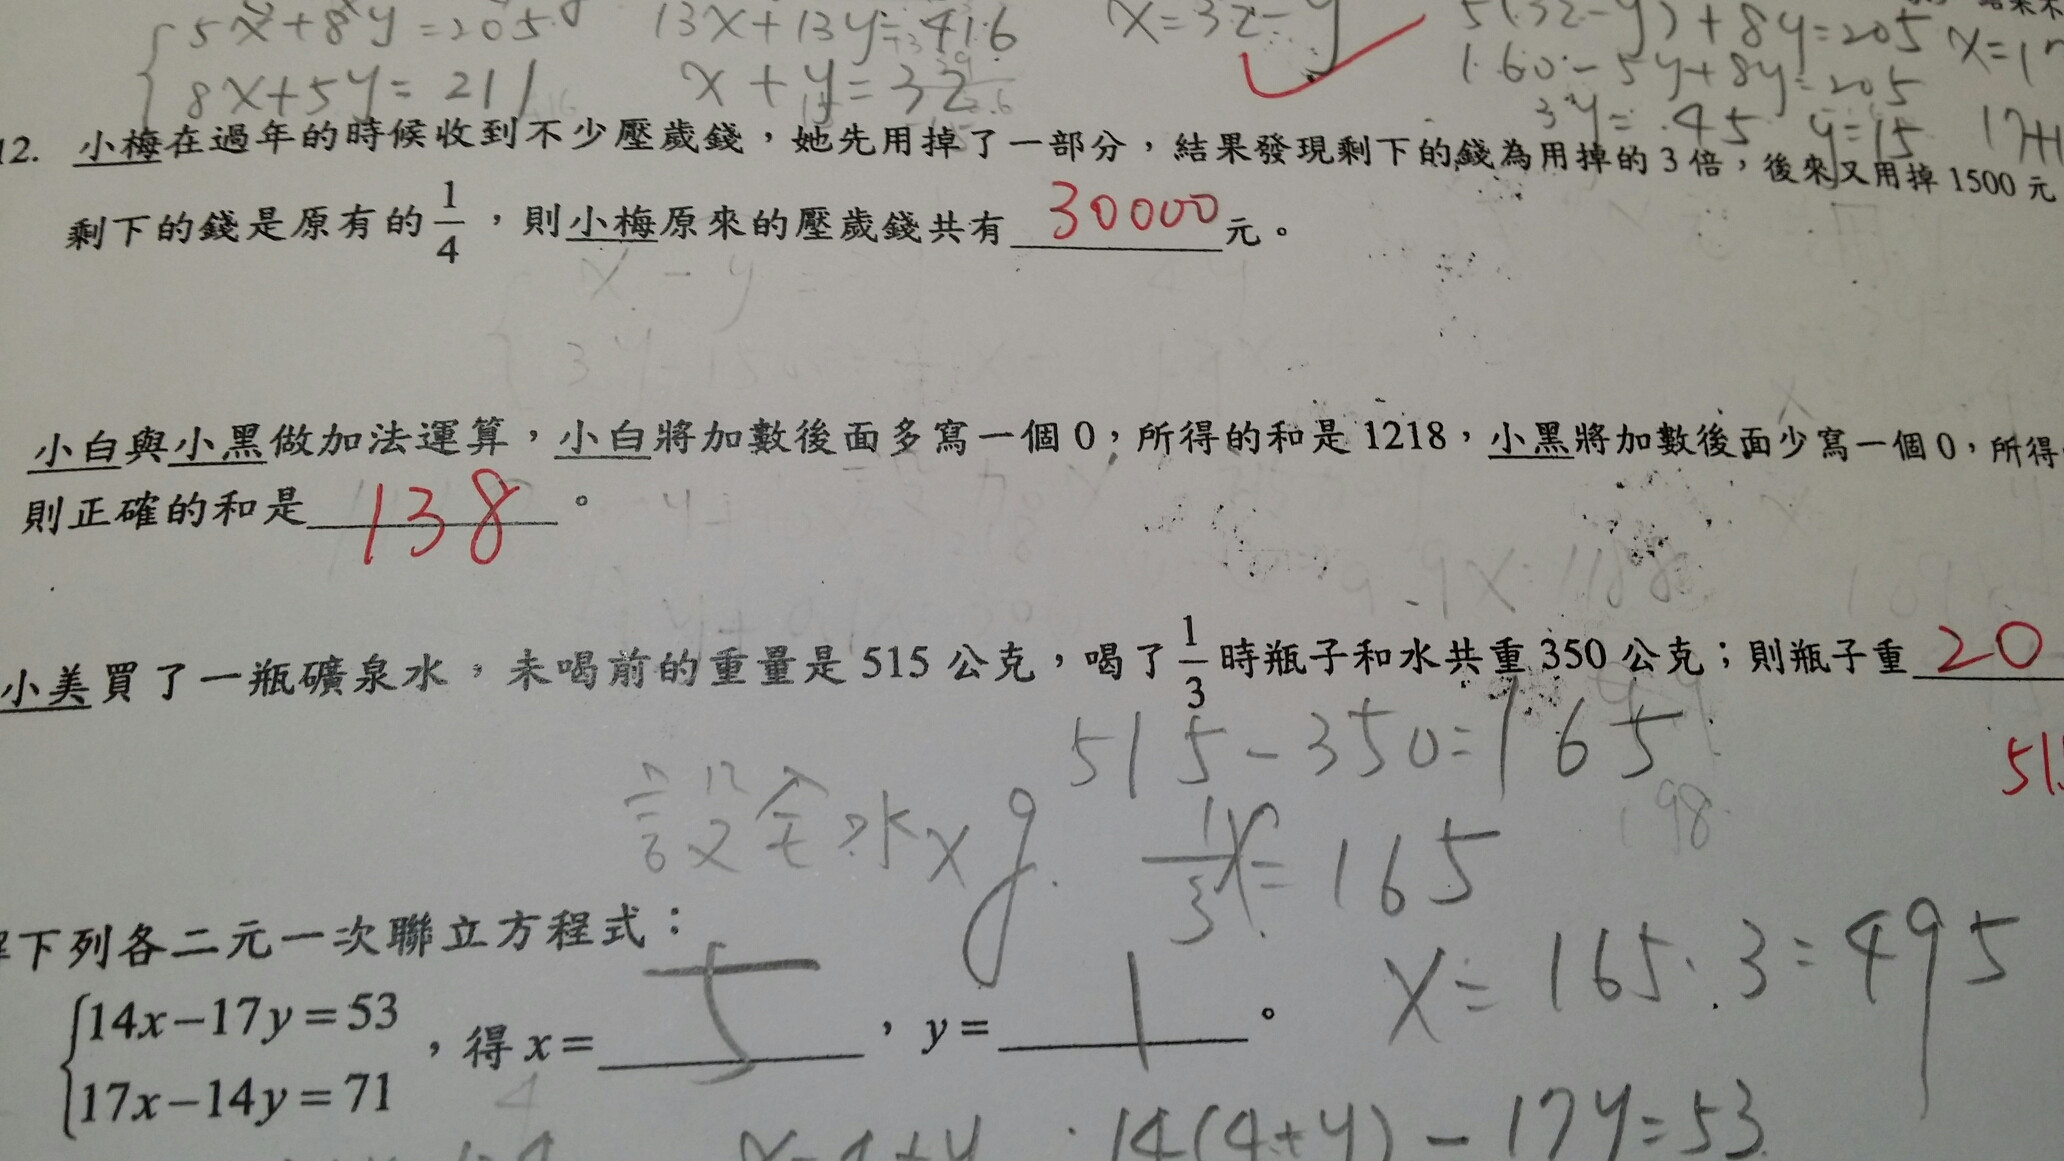 5x+8y=205 13x+13y=416 x=32-y 5(32-y)+8y=205
8x+5y=211 x+y=32 160-5y+8y=205
3y=45 y=15
12. 小梅在過年的時候收到不少壓歲錢，她先用掉了一部分，結果發現剩下的錢為用掉的3倍，後來又用掉1500元
剩下的錢是原有的1/4，則小梅原來的壓歲錢共有30000元。
小白與小黑做加法運算，小白將加數後面多寫一個0，所得的和是1218，小黑將加數後面少寫一個0，所得
則正確的和是138。
小美買了一瓶礦泉水，未喝前的重量是515公克，喝了1/3時瓶子和水共重350公克；則瓶子重20
515-350=165
設全水xg. 1/3x=165
x=165·3=495
下列各二元一次聯立方程式：
14x-17y=53
17x-14y=71
，得x=5，y=1。
14(4+y)-17y=53